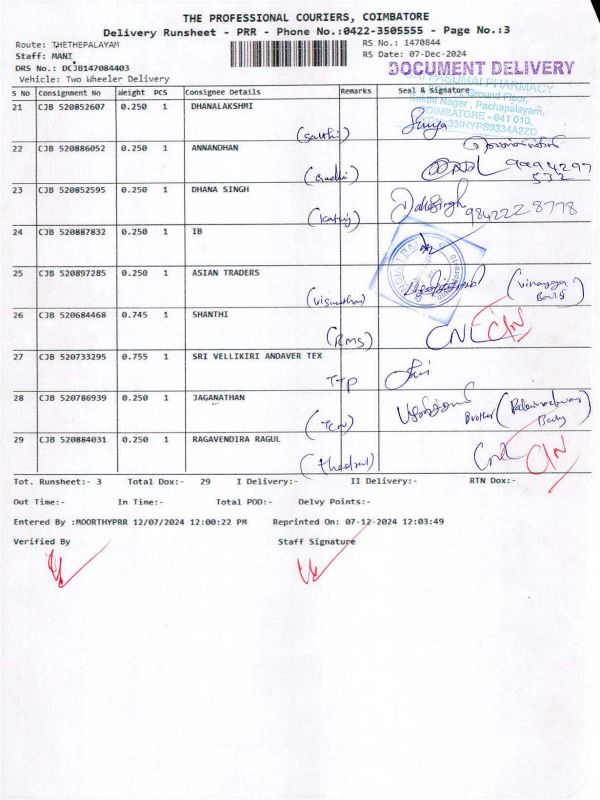 THE PROFESSIONAL COURIERS, COIMBATORE
Delivery Runsheet - PRR - Phone No.:0422-3505555 - Page No.:3
Route: THETHEPALAYAM
RS No.: 1470844
Staff: MANI
RS Date: 07-Dec-2024
DRS No.: DCJB147084403
DOCUMENT DELIVERY
Vehicle: Two Wheeler Delivery
PASUMAI PHARMACY
Ground Floor,
Sakthi Nagar, Pachapalayam,
COIMBATORE - 641 010.
33INYPS9334A2ZD
S No Consignment No Weight PCS Consignee Details Remarks Seal & Signature
21 CJB 520852607 0.250 1 DHANALAKSHMI
(Sakthi) Suriya
22 CJB 520886052 0.250 1 ANNANDHAN
9994297
532
23 CJB 520852595 0.250 1 DHANA SINGH
9842228778
24 CJB 520887832 0.250 1 IB
25 CJB 520897285 0.250 1 ASIAN TRADERS
26 CJB 520684468 0.745 1 SHANTHI
(RMS) CNL C/N
27 CJB 520733295 0.755 1 SRI VELLIKIRI ANDAVER TEX
TTP
28 CJB 520786939 0.250 1 JAGANATHAN
(TCN) Brother
29 CJB 520884031 0.250 1 RAGAVENDIRA RAGUL
CNL C/N
Tot. Runsheet:- 3 Total Dox:- 29 I Delivery:- II Delivery:- RTN Dox:-
Out Time:- In Time:- Total POD:- Delvy Points:-
Entered By :MOORTHYPRR 12/07/2024 12:00:22 PM Reprinted On: 07-12-2024 12:03:49
Verified By Staff Signature